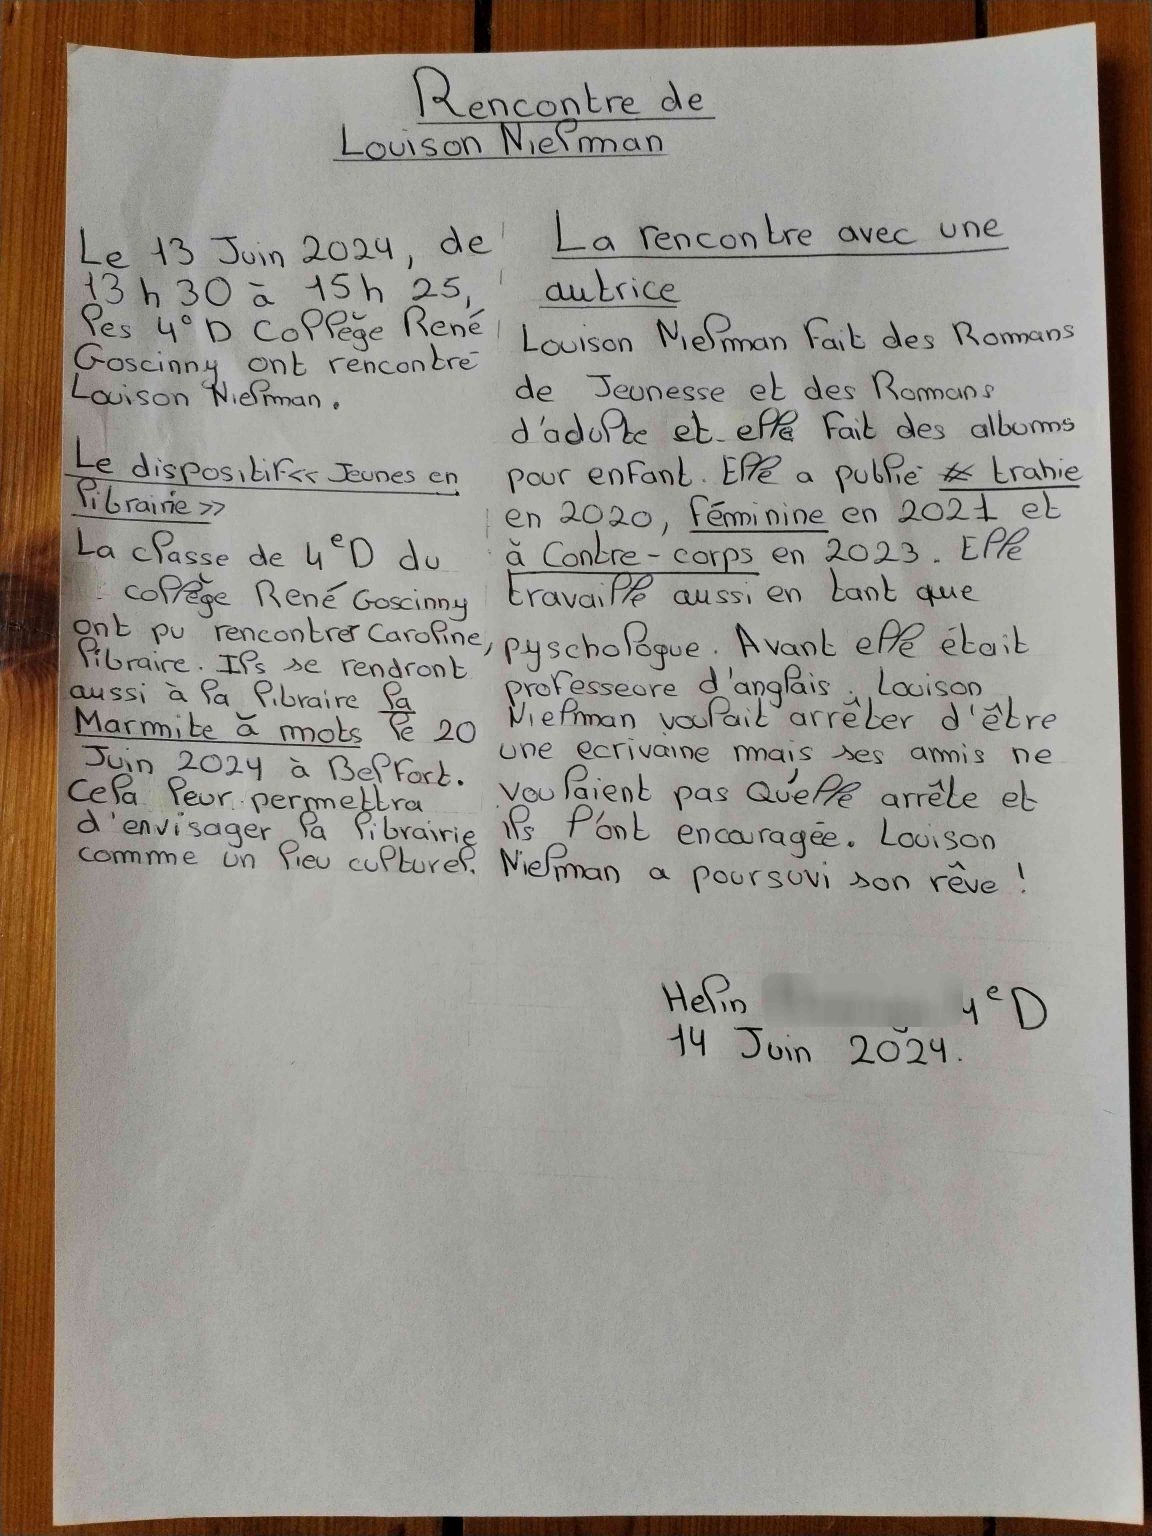 Rencontre de
Louison Nielman
Le 13 Juin 2024, de
13 h 30 à 15h 25,
les 4° D Collège René
Goscinny ont rencontré
Louison Nielman.
Le dispositif << Jeunes en
librairie >>
La classe de 4eD du
collège René Goscinny
ont pu rencontrer Caroline,
libraire. Ils se rendront
aussi à la libraire la
Marmite à mots le 20
Juin 2024 à Belfort.
Cela leur permettra
d'envisager la librairie
comme un lieu culturel.
La rencontre avec une
autrice
Louison Nielman Fait des Romans
de Jeunesse et des Romans
d'adulte et elle Fait des albums
pour enfant. Elle a publié # trahie
en 2020, Féminine en 2021 et
à Contre-corps en 2023. Elle
travaille aussi en tant que
pyschologue. Avant elle était
professeore d'anglais. Louison
Nielman voulait arrêter d'être
une ecrivaine mais ses amis ne
voulaient pas Qu'elle arrête et
ils l'ont encouragée. Louison
Nielman a poursuvi son rêve !
Helin 4eD
14 Juin 2024.